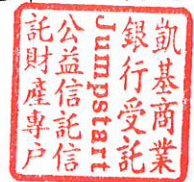 凱基商業
銀行受託
Jumpstart
公益信託信
託財產專戶